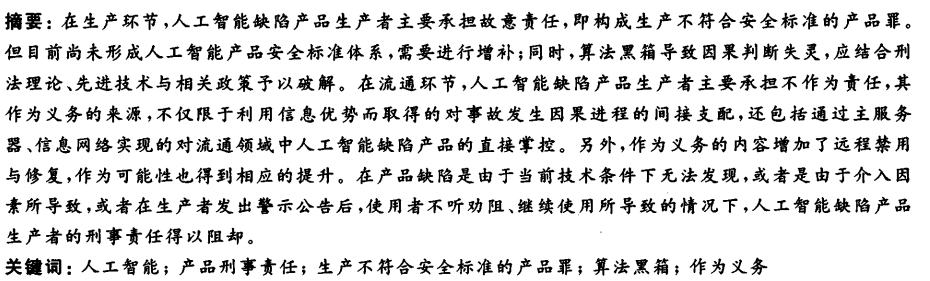 摘要：在生产环节,人工智能缺陷产品生产者主要承担故意责任,即构成生产不符合安全标准的产品罪。
但目前尚未形成人工智能产品安全标准体系,需要进行增补;同时,算法黑箱导致因果判断失灵,应结合刑
法理论、先进技术与相关政策予以破解。在流通环节,人工智能缺陷产品生产者主要承担不作为责任,其
作为义务的来源,不仅限于利用信息优势而取得的对事故发生因果进程的间接支配,还包括通过主服务
器、信息网络实现的对流通领域中人工智能缺陷产品的直接掌控。另外,作为义务的内容增加了远程禁用
与修复,作为可能性也得到相应的提升。在产品缺陷是由于当前技术条件下无法发现,或者是由于介入因
素所导致,或者在生产者发出警示公告后,使用者不听劝阻、继续使用所导致的情况下,人工智能缺陷产品
生产者的刑事责任得以阻却。
关键词：人工智能；产品刑事责任；生产不符合安全标准的产品罪；算法黑箱；作为义务